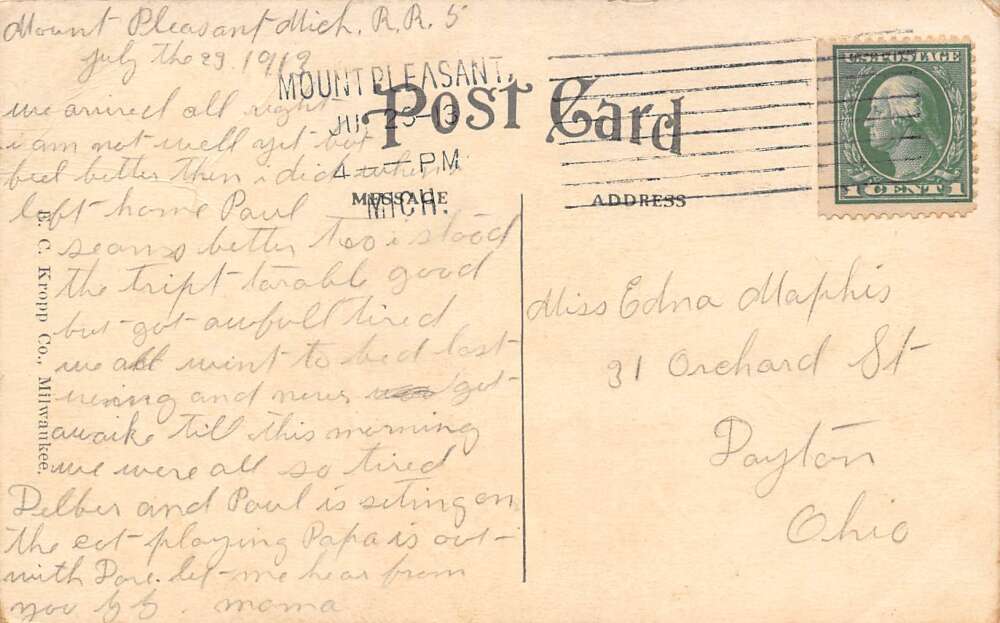 Mount Pleasant Mich. R.R. 5
july the 29 1913
MOUNT PLEASANT,
4 — PM
MICH.
Post Card
U.S. POSTAGE
1 CENT 1
MESSAGE
ADDRESS
we arrived all right
i am not well yet but
feel better then i did when
left home Paul
seams better too i stood
the tript torable good
but got awfull tired
we all wint to bed last
and never got
awaike till this morning
we were all so tired
Delber and Paul is seting on
the cot playing Papa is out
with Dore. let me hear from
you by by. moma
E. C. Kropp Co., Milwaukee.
Miss Edna Maphis
31 Orchard St
Dayton
Ohio